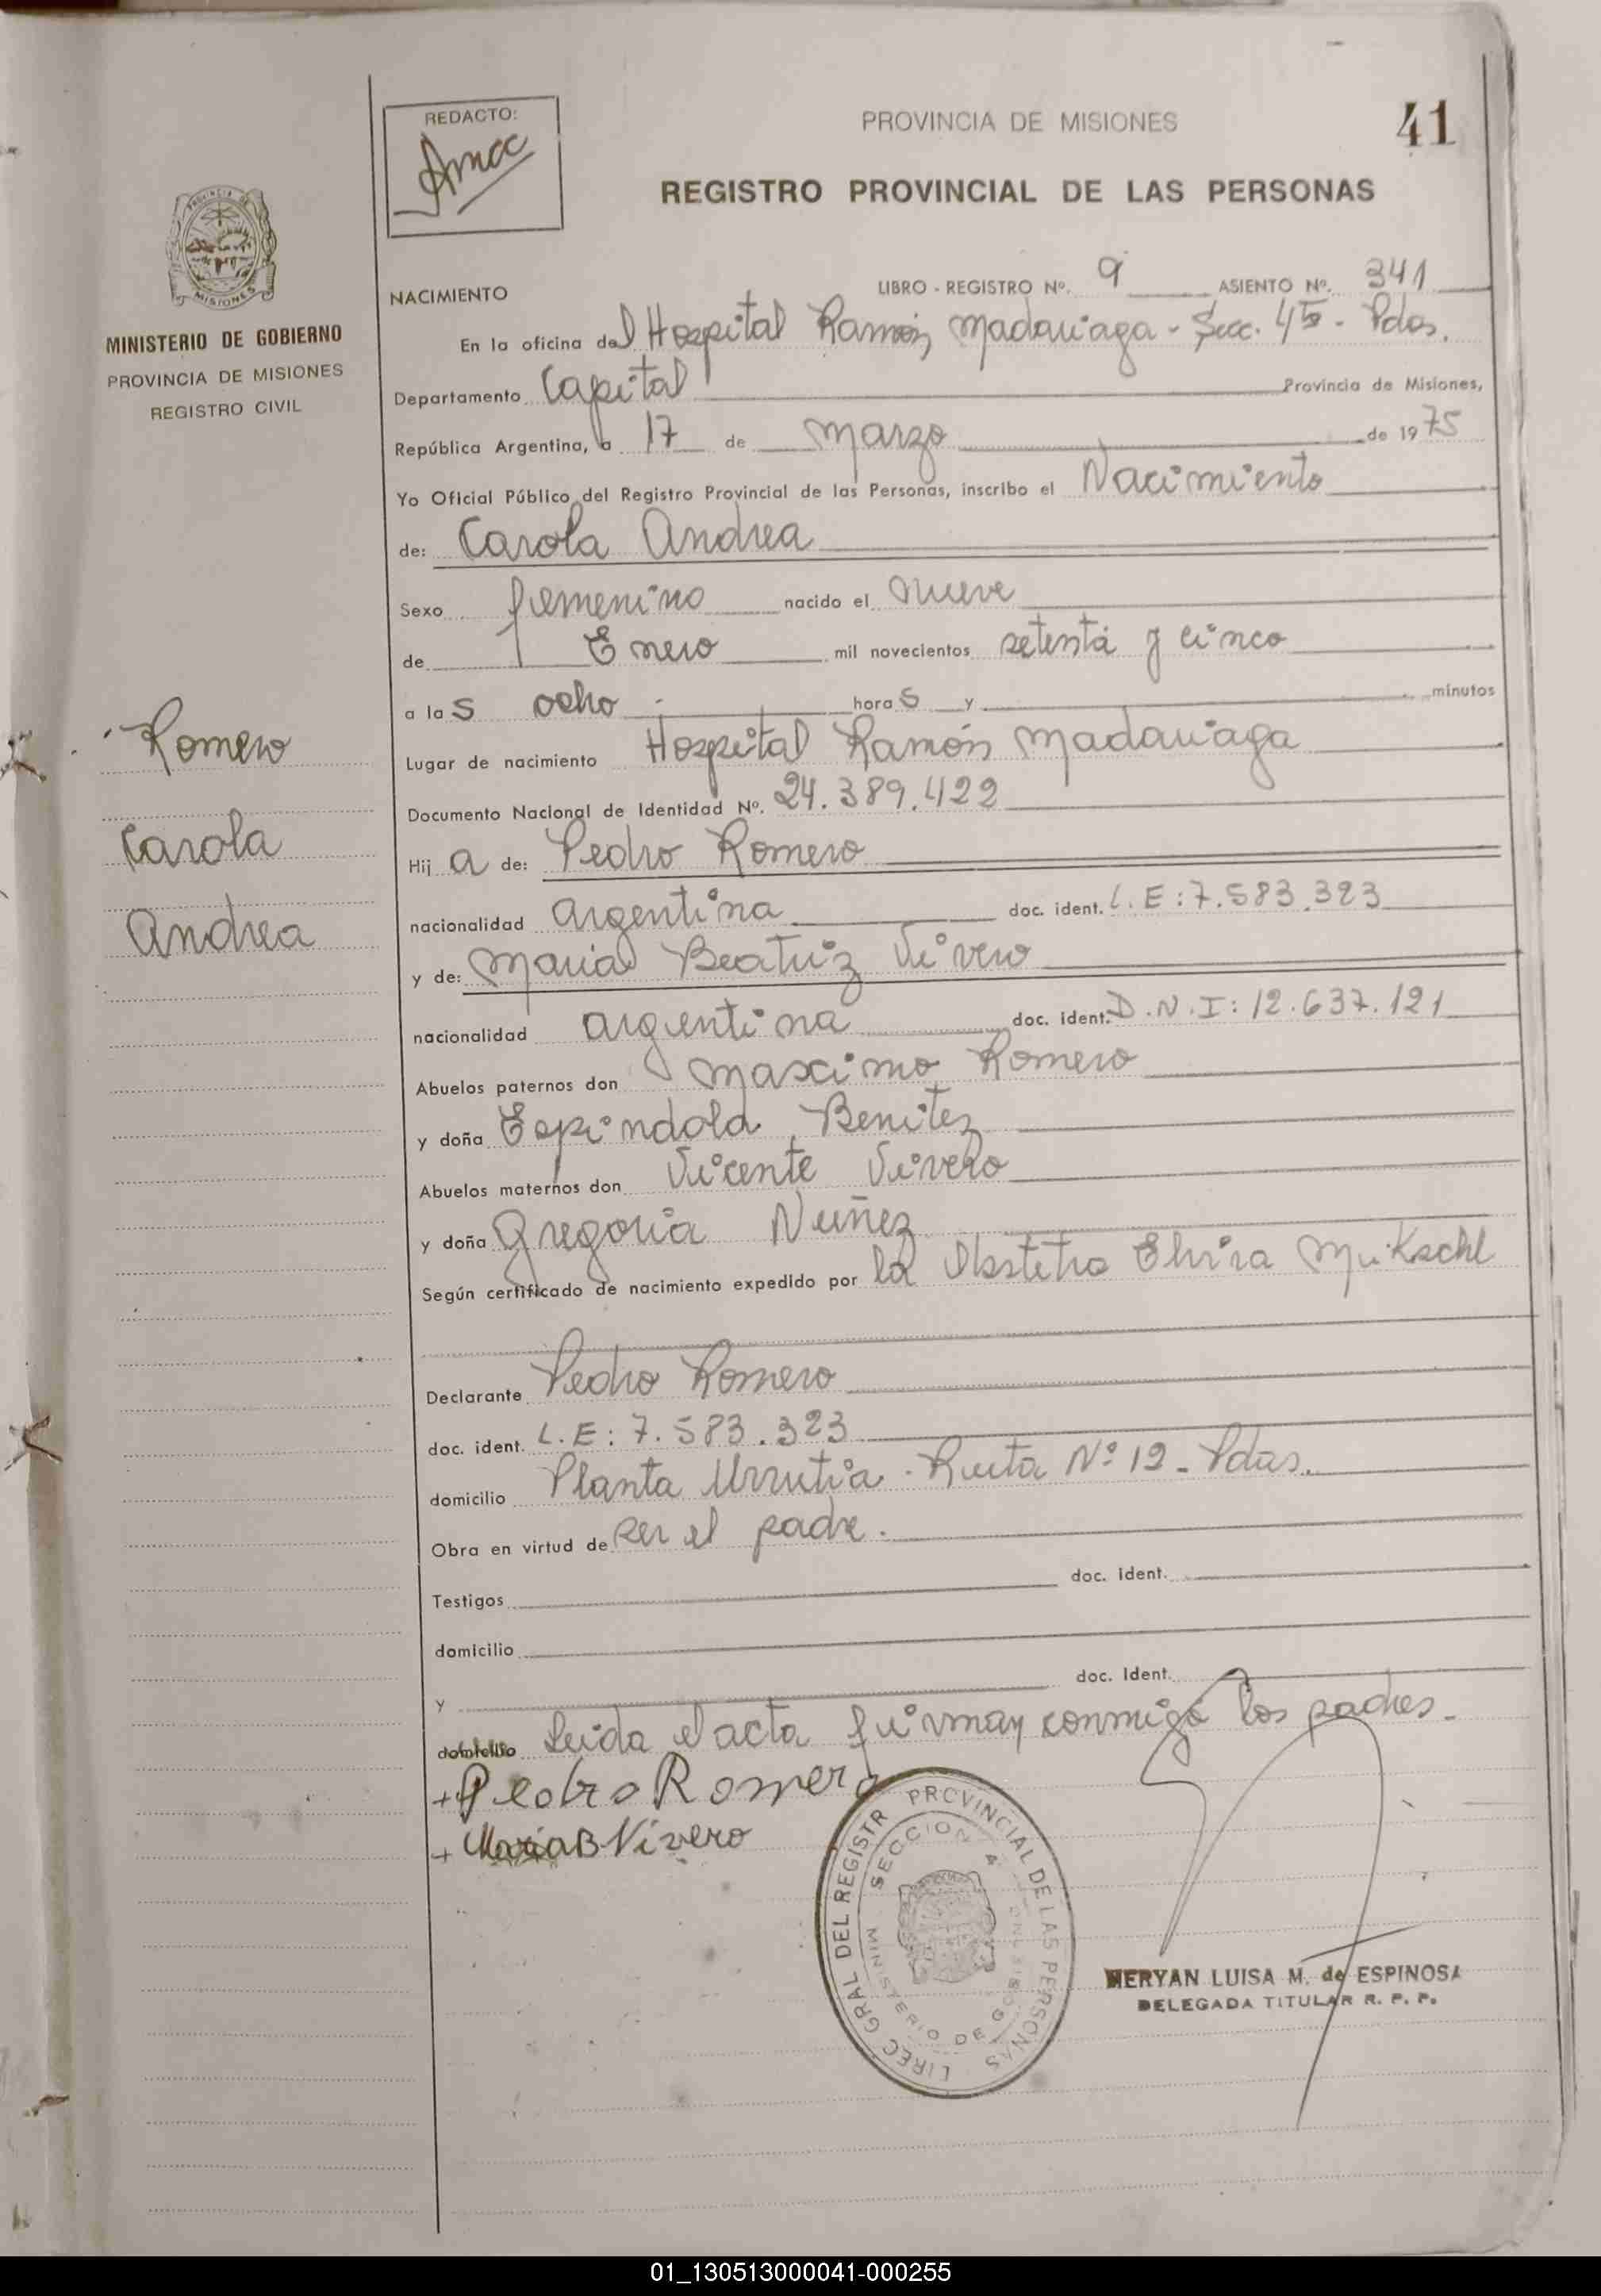 REDACTO:
PROVINCIA DE MISIONES
41
REGISTRO PROVINCIAL DE LAS PERSONAS
MISIONES
MINISTERIO DE GOBIERNO
PROVINCIA DE MISIONES
REGISTRO CIVIL
NACIMIENTO LIBRO - REGISTRO Nº. 9 ASIENTO Nº. 341
En la oficina del Hospital Ramón Madariaga - Secc. 4ta - Pdas.
Departamento Capital Provincia de Misiones,
República Argentina, a 17 de Marzo de 1975
Yo Oficial Público del Registro Provincial de las Personas, inscribo el Nacimiento
de: Carola Andrea
Sexo femenino nacido el Nueve
de Enero mil novecientos setenta y cinco
a las ocho horas y minutos
Lugar de nacimiento Hospital Ramón Madariaga
Documento Nacional de Identidad Nº. 24.389.422
Hija de: Pedro Romero
nacionalidad argentina doc. ident. L.E: 7.583.323
y de: Maria Beatriz Vivero
nacionalidad argentina doc. ident. D.N.I: 12.637.121
Abuelos paternos don Maximo Romero
y doña Espindola Benitez
Abuelos maternos don Vicente Vivero
y doña Gregoria Nuñez
Según certificado de nacimiento expedido por la Obstetra Elvira Mikschl
Declarante Pedro Romero
doc. ident. L.E: 7.583.323
domicilio Planta Urrutia - Ruta Nº 12 - Pdas.
Obra en virtud de ser el padre.
Testigos doc. ident.
domicilio
y doc. Ident.
domicilio Leida el acta firman conmigo los padres.
+ Pedro Romero
+ Maria B Vivero
Romero
Carola
Andrea
DIREC GRAL DEL REGISTR PROVINCIAL DE LAS PERSONAS
SECCION 4
MINISTERIO DE GOB
MERYAN LUISA M. de ESPINOSA
DELEGADA TITULAR R. P. P.
01_130513000041-000255